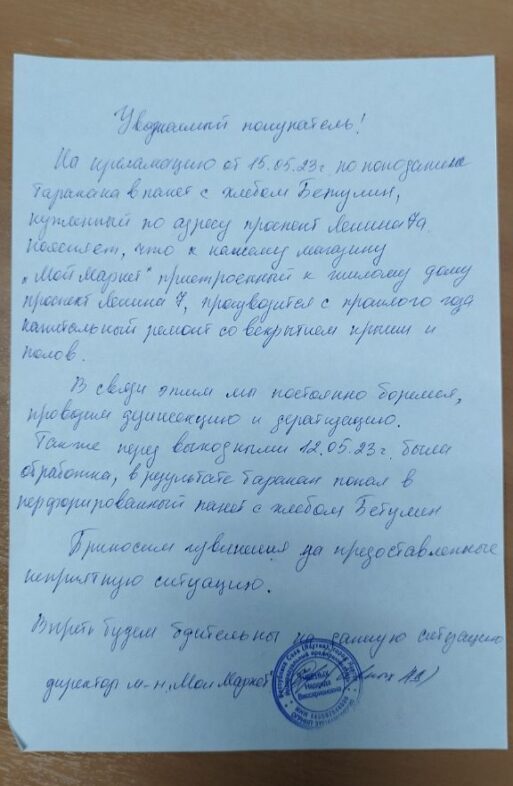 Уважаемый покупатель!
На крекламацию от 15.05.23г. по попаданию
таракана в пакет с хлебом Бетулин,
купленный по адресу проспект Ленина 7а.
поясняет, что к нашему магазину
„Мой Маркет" пристроенный к жилому дому
проспект Ленина 7, прозводится с прошлого года
капитальный ремонт со вскрытием крыши и
полов.
В связи этим мы постоянно боремся,
проводим дезинсекцию и дератизацию.
Также перед выходными 12.05.23г. была
обработка, в результате таракан попал в
перфорированный пакет с хлебом Бетулин
Приносим извинения за предоставленные
неприятную ситуацию.
Впредь будем бдительны на данную ситуацию
директор м-н „Мой Маркет"